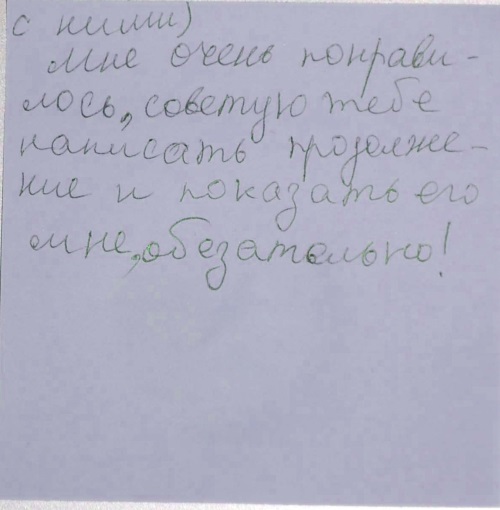 с ними)
Мне очень понрави-
лось, советую тебе
написать продолже-
ние и показать его
мне, обезательно!